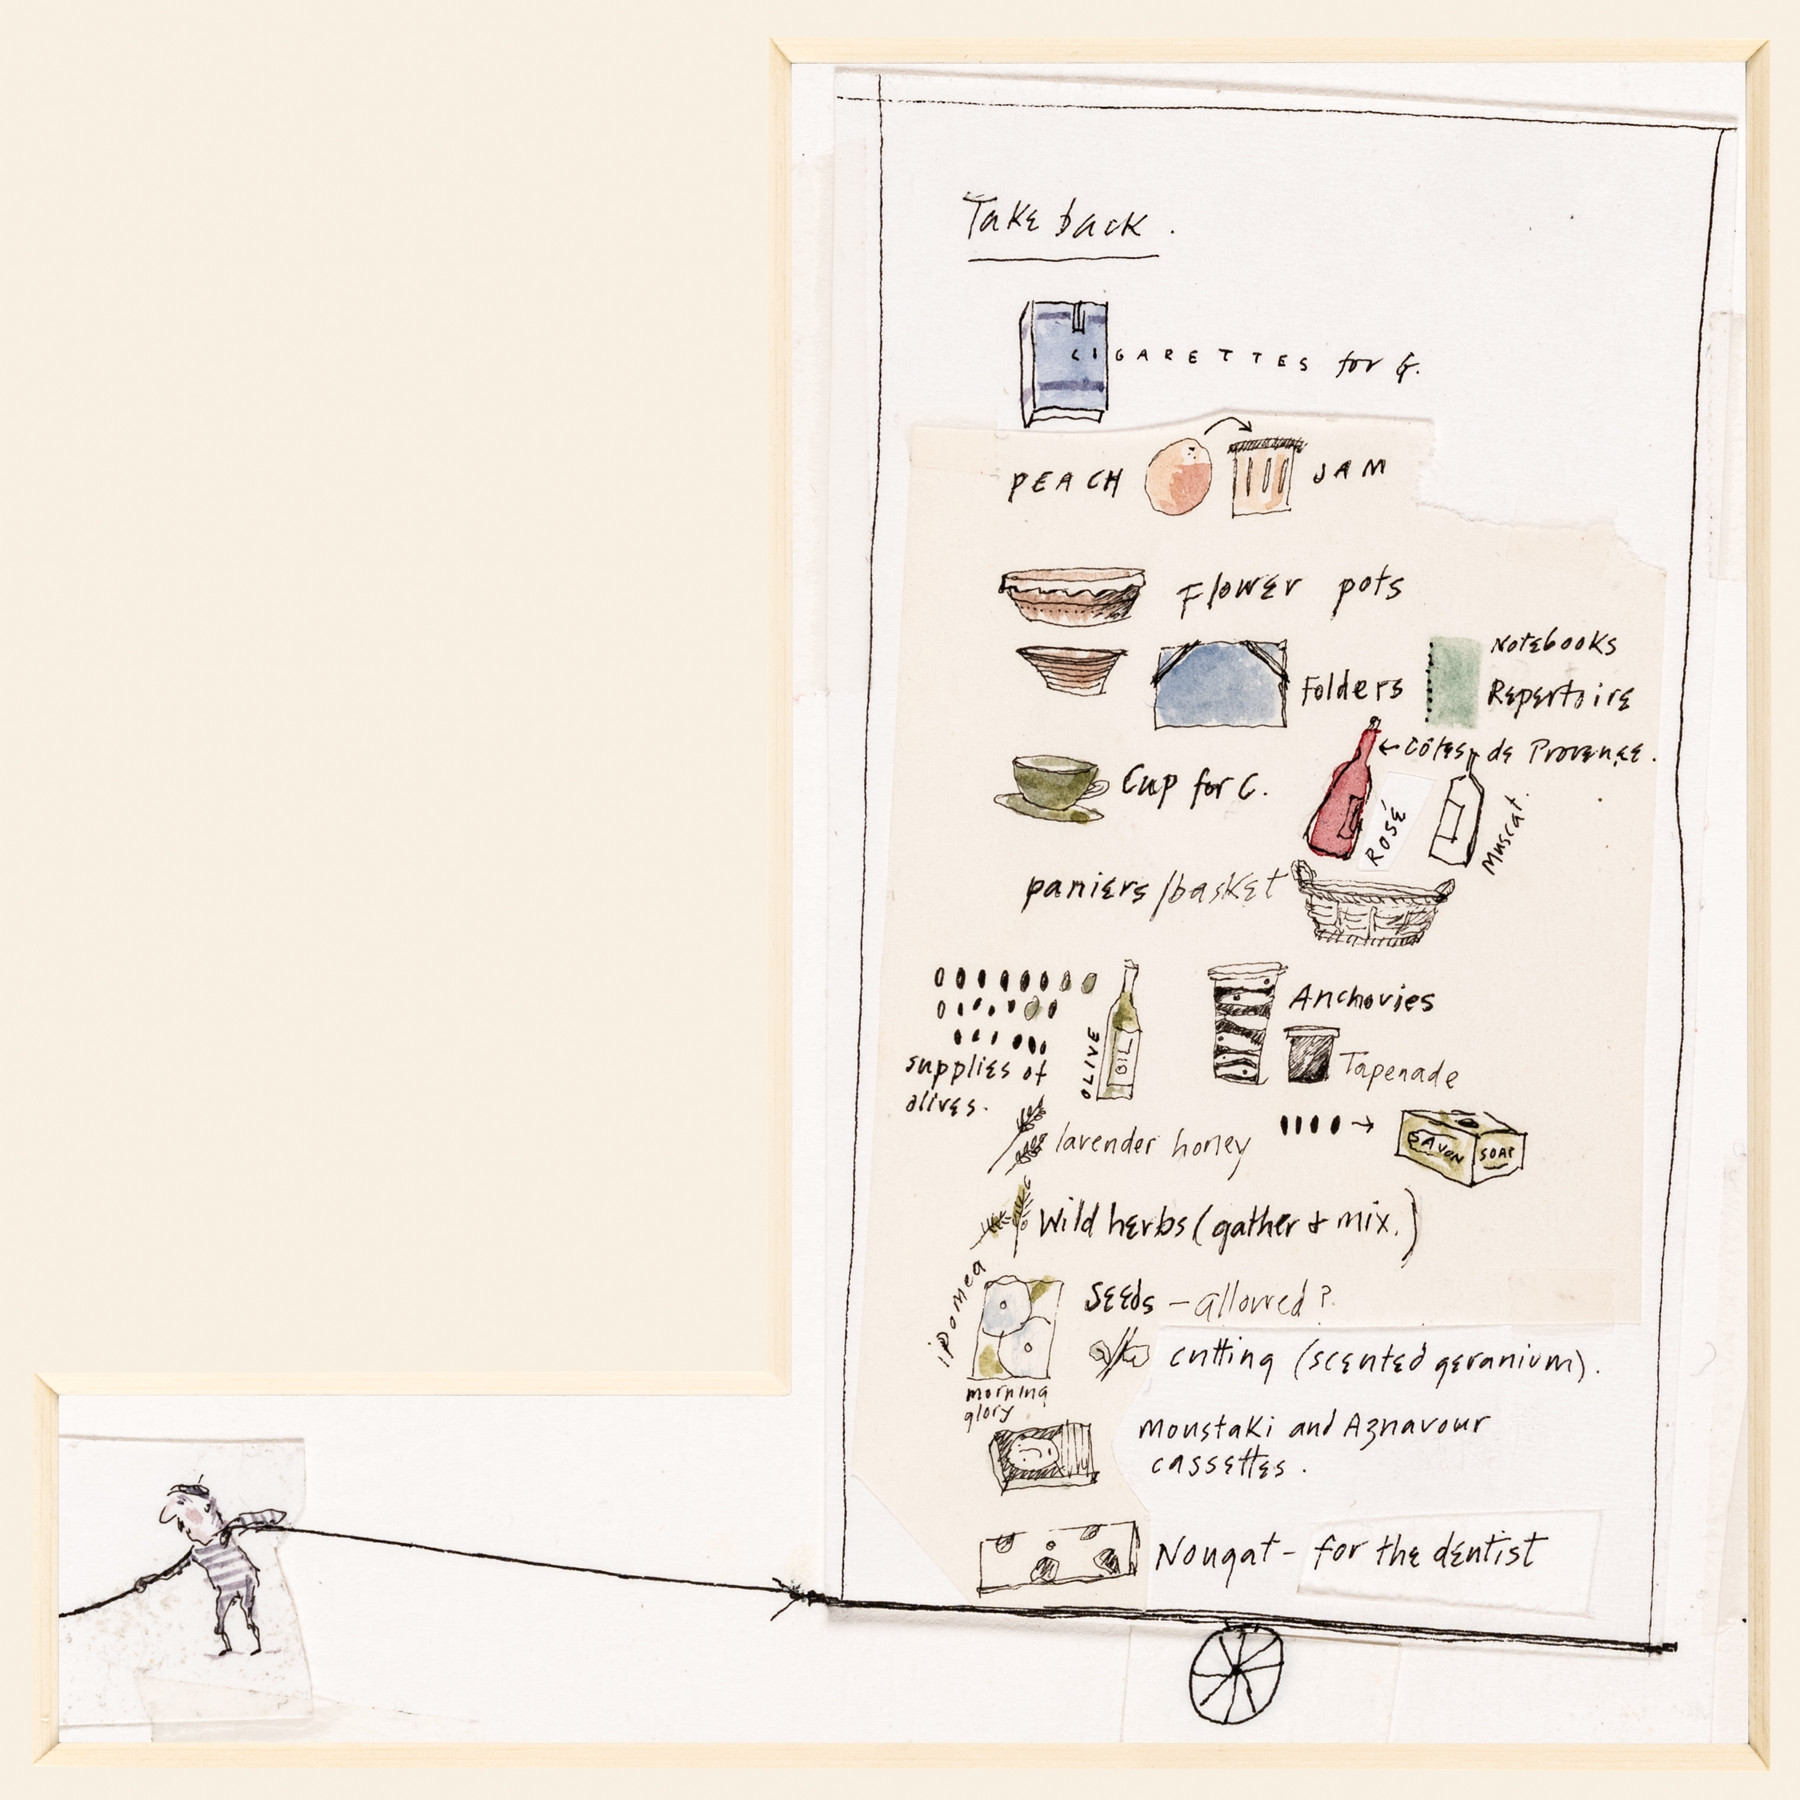 Take back.
CIGARETTES for G.
PEACH JAM
Flower pots
Folders
Notebooks
Repertoire
← Côtes de Provence.
Cup for C.
ROSÉ
Muscat.
paniers/basket
supplies of
olives.
OLIVE
OIL
Anchovies
Tapenade
lavender honey
SAVON
SOAP
Wild herbs (gather & mix.)
ipomea
Seeds - allowed?
cutting (scented geranium).
morning
glory
Moustaki and Aznavour
cassettes.
Nougat - for the dentist